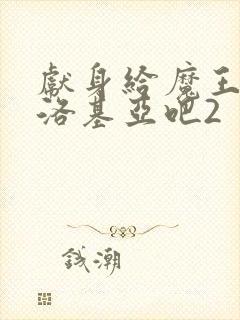 獻身給魔王
洛基亞吧2
錢潮